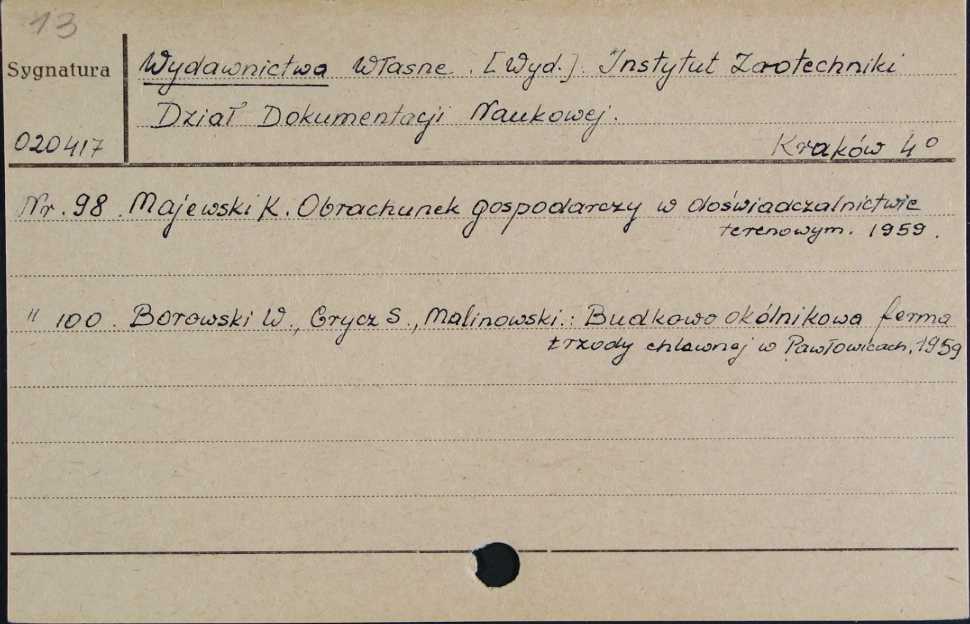 13
Sygnatura
Wydawnictwa Własne. [Wyd.]. Instytut Zootechniki
Dział Dokumentacji Naukowej.
020417
Kraków 4°
Nr. 98. Majewski K. Obrachunek gospodarczy w doświadczalnictwie
terenowym. 1959.
" 100. Borowski W., Grycz S., Malinowski.: Budkowo okólnikowa ferma
trzody chlewnej w Pawłowicach, 1959